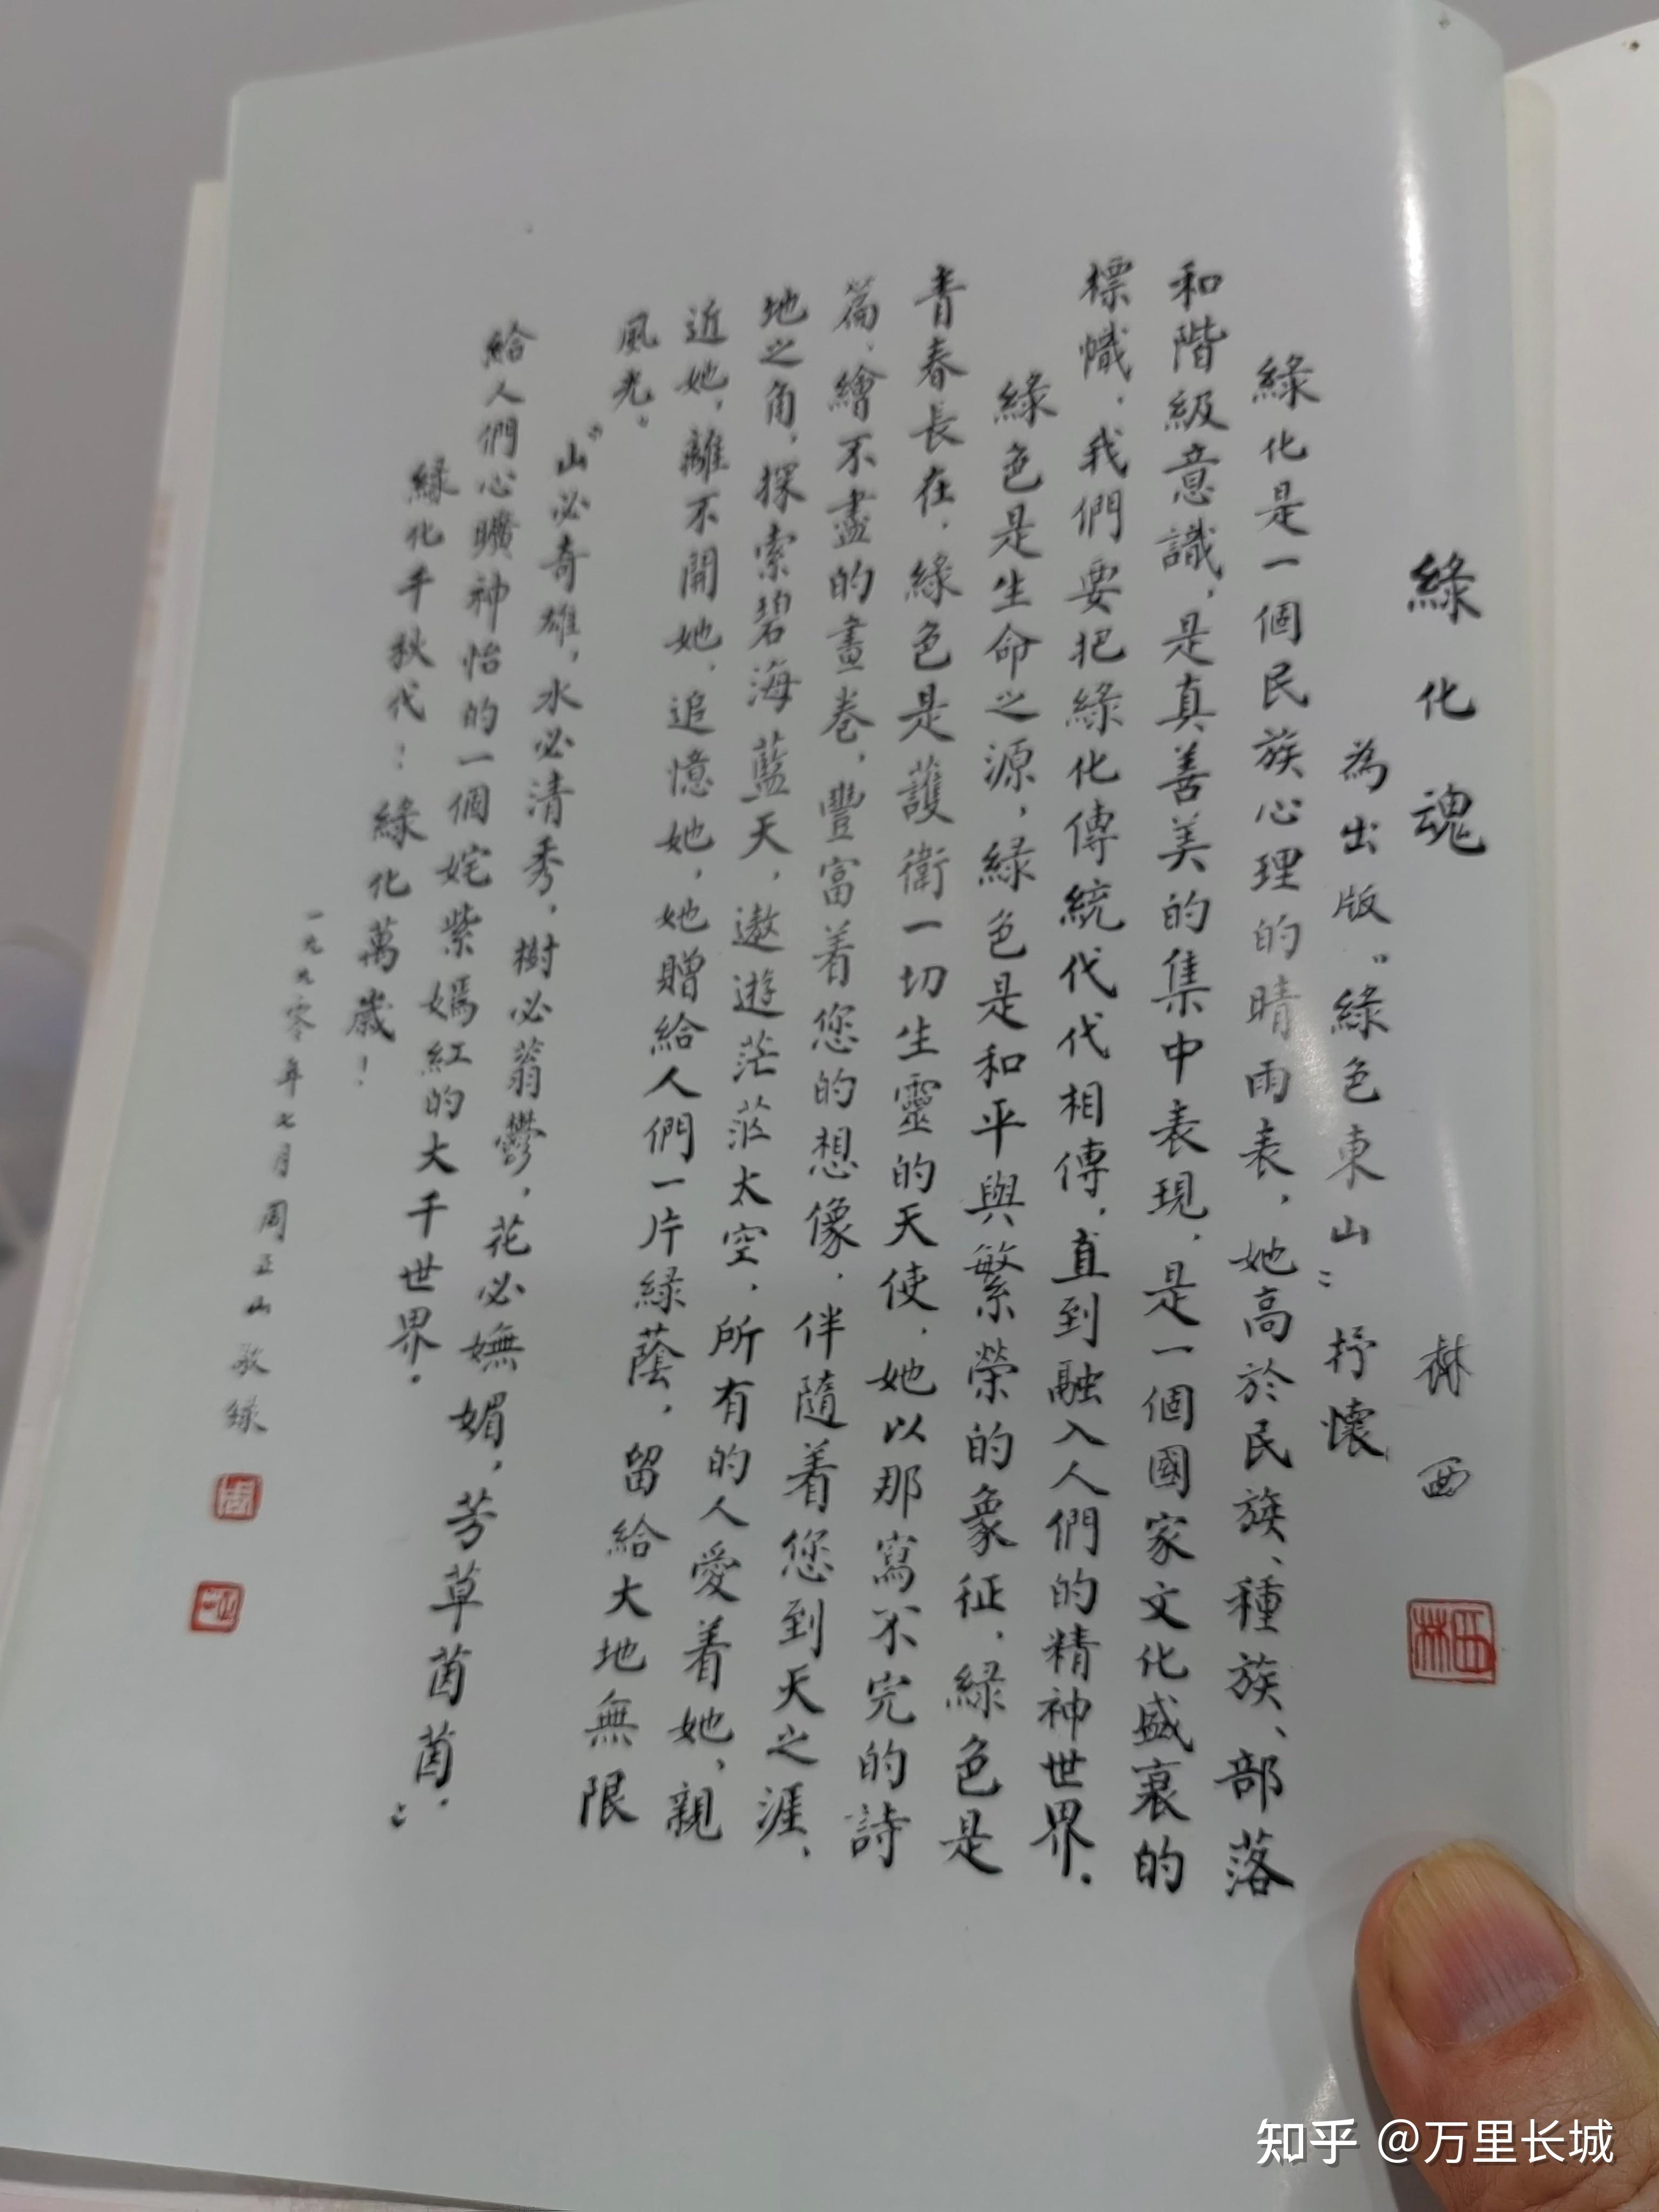 綠化魂 林西
林西
為出版“綠色東山”抒懷
綠化是一個民族心理的晴雨表，她高於民族、種族、部落
和階級意識，是真善美的集中表現，是一個國家文化盛衰的
標幟，我們要把綠化傳統代代相傳，直到融入人們的精神世界．
綠色是生命之源，綠色是和平與繁榮的象征，綠色是
青春長在，綠色是護衛一切生靈的天使，她以那寫不完的詩
篇，繪不盡的畫卷，豐富着您的想像，伴隨着您到天之涯、
地之角，探索碧海藍天，遨遊茫茫太空，所有的人愛着她，親
近她，離不開她，追憶她，她贈給人們一片綠蔭，留給大地無限
風光。
“山必奇雄，水必清秀，樹必蓊鬱，花必嫵媚，芳草茵茵．”
給人們心曠神怡的一個姹紫嫣紅的大千世界．
綠化千秋代！綠化萬歲！
一九九零年七月周正山敬錄
知乎 @万里长城